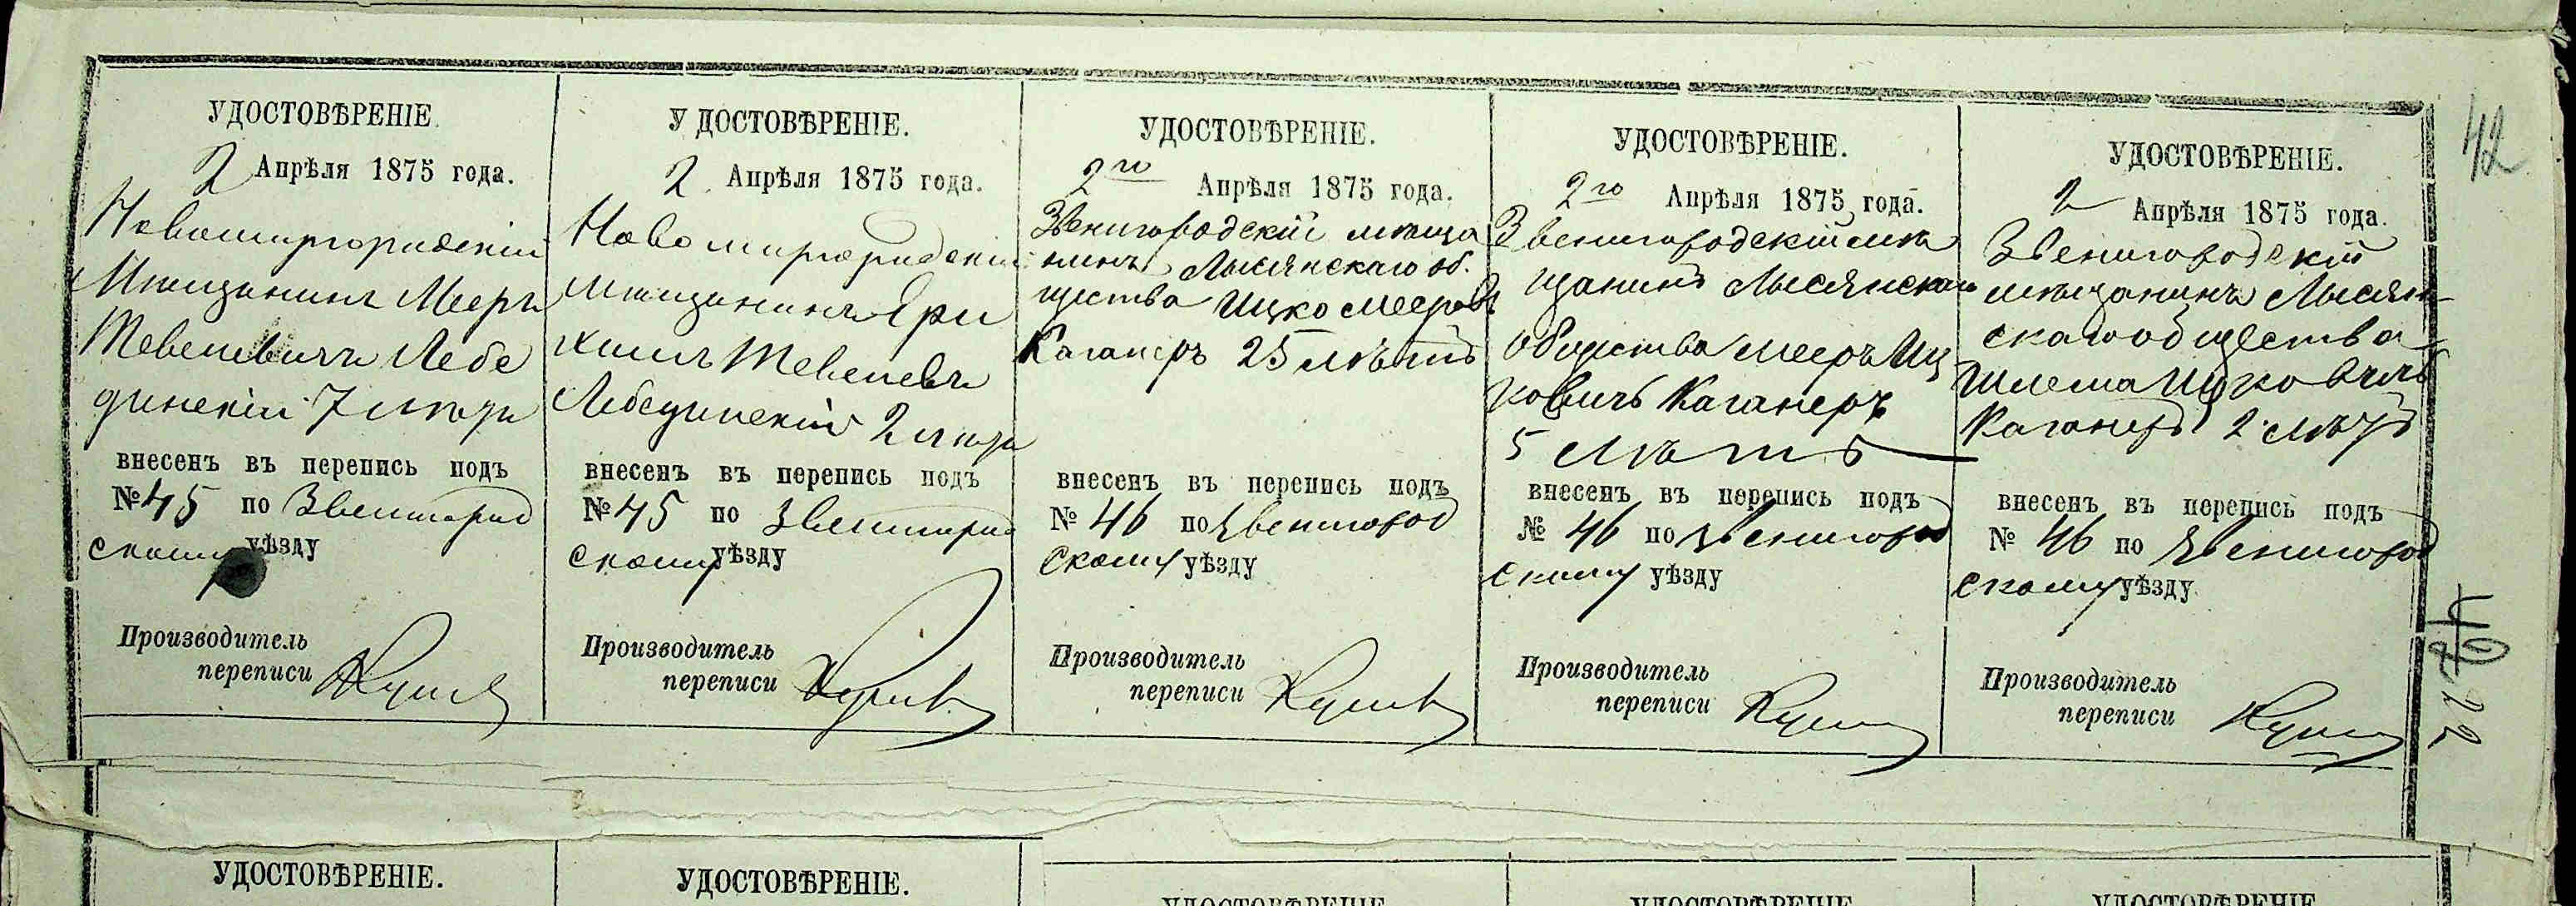 42
УДОСТОВѢРЕНІЕ.
2 Апрѣля 1875 года.
Новомиргородскій
Мѣщанинъ Мееръ
Тевелевичъ Лебе
динскій 7 лѣтъ
внесенъ въ перепись подъ
№ 45 по Звенигород
скому уѣзду
Производитель
переписи
УДОСТОВѢРЕНІЕ.
2 Апрѣля 1875 года.
Новомиргородскій
Мѣщанинъ Ери
химъ Тевелевъ
Лебединскій 2 лѣтъ
внесенъ въ перепись подъ
№ 45 по Звенигород
скому уѣзду
Производитель
переписи
УДОСТОВѢРЕНІЕ.
2го Апрѣля 1875 года.
Звенигородскій мѣща
нинъ Лысянскаго об.
щества Ицко Мееровъ
Каганеръ 25 лѣтъ
внесенъ въ перепись подъ
№ 46 по Звенигород
скому уѣзду
Производитель
переписи
УДОСТОВѢРЕНІЕ.
2го Апрѣля 1875 года.
Звенигородскій мѣ
щанинъ Лысянскаго
общества Мееръ Иц
ковичъ Каганеръ
5 лѣтъ
внесенъ въ перепись подъ
№ 46 по Звенигород
скому уѣзду
Производитель
переписи
УДОСТОВѢРЕНІЕ.
2 Апрѣля 1875 года.
Звенигородскій
мѣщанинъ Лысян
скаго общества
Шлема Ицковичъ
Каганеръ 2 лѣтъ
внесенъ въ перепись подъ
№ 46 по Звенигород
скому уѣзду
Производитель
переписи
УДОСТОВѢРЕНІЕ.
УДОСТОВѢРЕНІЕ.
УДОСТОВѢРЕНІЕ
УДОСТОВѢРЕНІЕ
УДОСТОВѢРЕНІЕ